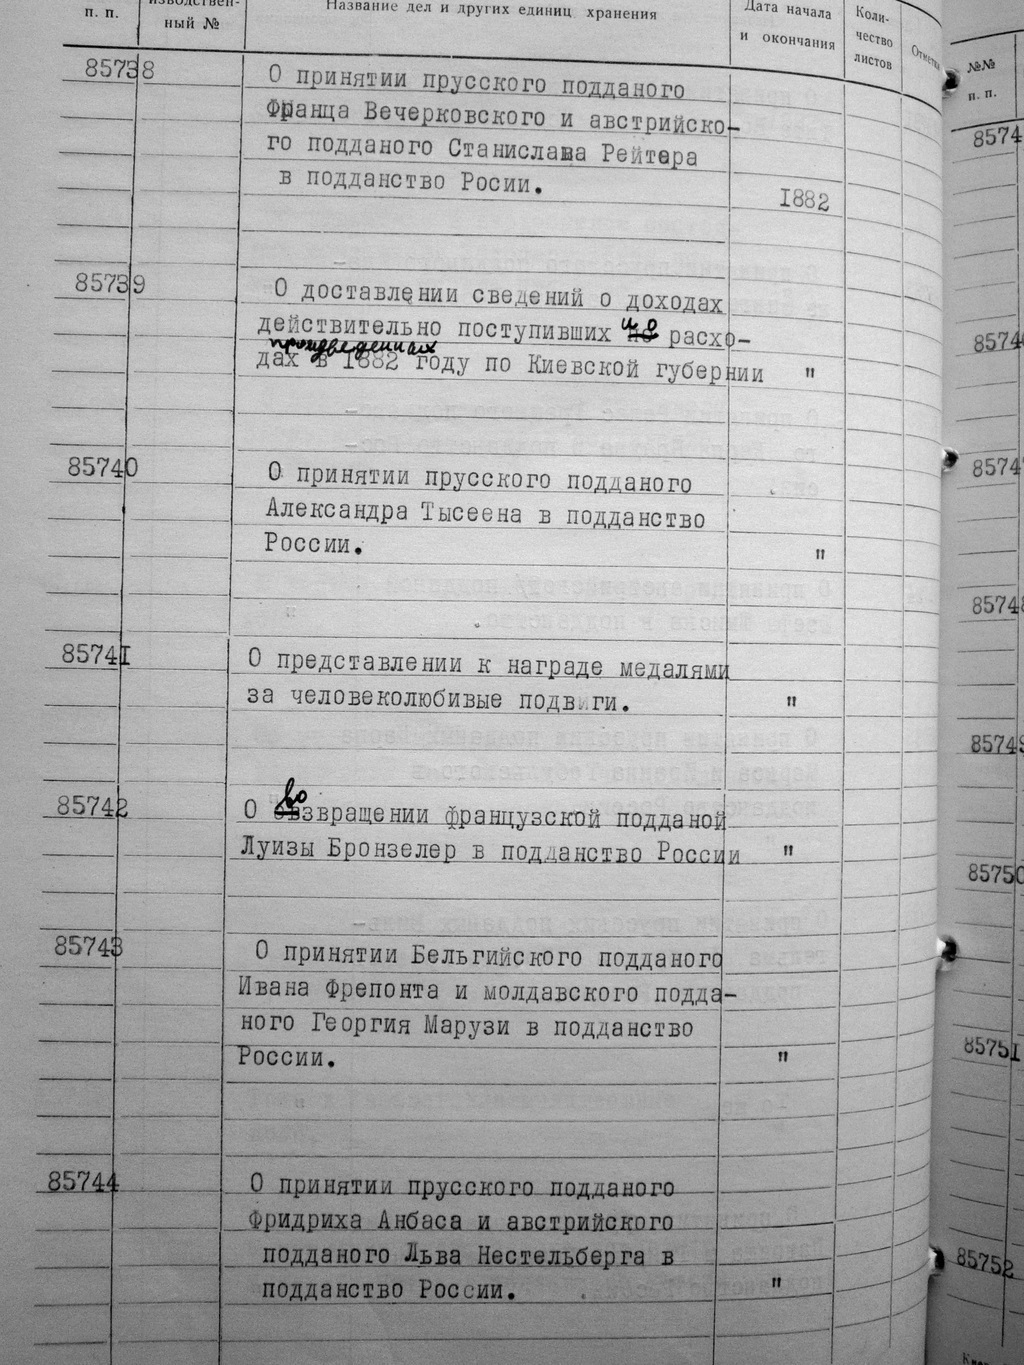 п. п.
изводствен-
ный №
Название дел и других единиц хранения
Дата начала
и окончания
Коли-
чество
листов
Отметка
85738
О принятии прусского подданого
Франца Вечерковского и австрийско-
го подданого Станислава Рейтера
в подданство Росии.
1882
85739
О доставлении сведений о доходах
действительно поступивших и о расхо-
произведенных
дах в 1882 году по Киевской губернии "
85740
О принятии прусского подданого
Александра Тысеена в подданство
России. "
85741
О представлении к награде медалями
за человеколюбивые подвиги. "
85742
О возвращении французской подданой
Луизы Бронзелер в подданство России "
85743
О принятии Бельгийского подданого
Ивана Фрепонта и молдавского подда-
ного Георгия Марузи в подданство
России. "
85744
О принятии прусского подданого
Фридриха Анбаса и австрийского
подданого Льва Нестельберга в
подданство России. "
№№
п. п.
8574
8574
8574
85748
85749
85750
85751
85752